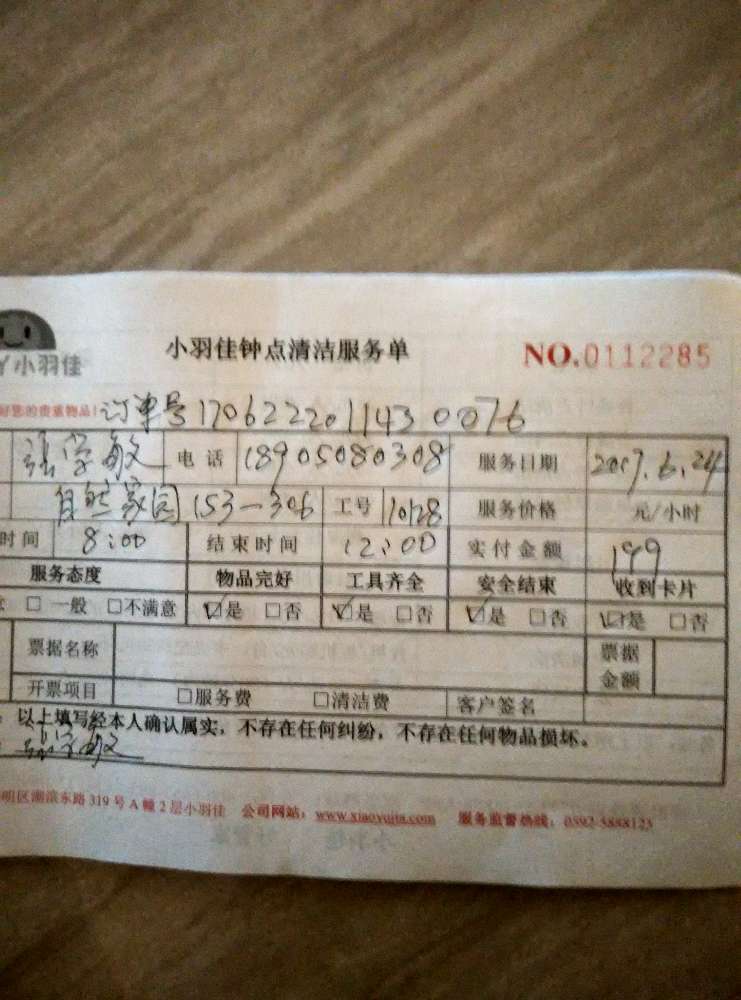 小羽佳
小羽佳钟点清洁服务单
NO.0112285
好您的贵重物品! 订单号170622201143 0076
张学敏 电话 18905080308 服务日期 2017.6.24
自然家园153-306 工号 10128 服务价格 元/小时
时间 8:00 结束时间 12:00 实付金额 199
服务态度 物品完好 工具齐全 安全结束 收到卡片
□一般 □不满意 ☑是 □否 ☑是 □否 ☑是 □否 ☑是 □否
票据名称 票据金额
开票项目 □服务费 □清洁费 客户签名
以上填写经本人确认属实，不存在任何纠纷，不存在任何物品损坏。
张学敏
明区湖滨东路319号A幢2层小羽佳 公司网站：www.xiaoyujia.com 服务监督热线：0592-5888123